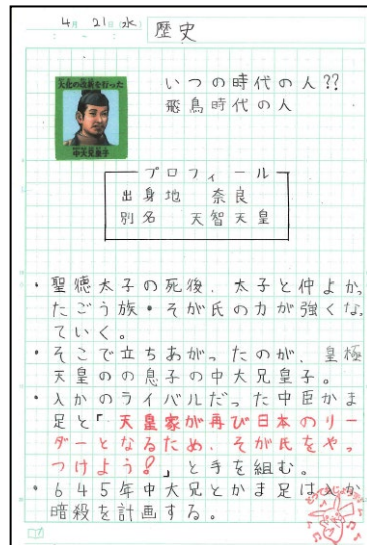 4月21日(水)
歴史
大化の改新を行った
中大兄皇子
いつの時代の人??
飛鳥時代の人
プロフィール
出身地 奈良
別名 天智天皇
・聖徳太子の死後、太子と仲よか
たごう族・そが氏の力が強くな
ていく。
・そこで立ちあがったのが、皇極
天皇のの息子の中大兄皇子。
・入かのライバルだった中臣かま
足と「天皇家が再び日本のリー
ダーとなるため、そが氏をやっ
つけよう!」と手を組む。
・645年中大兄とかま足は入か
暗殺を計画する。